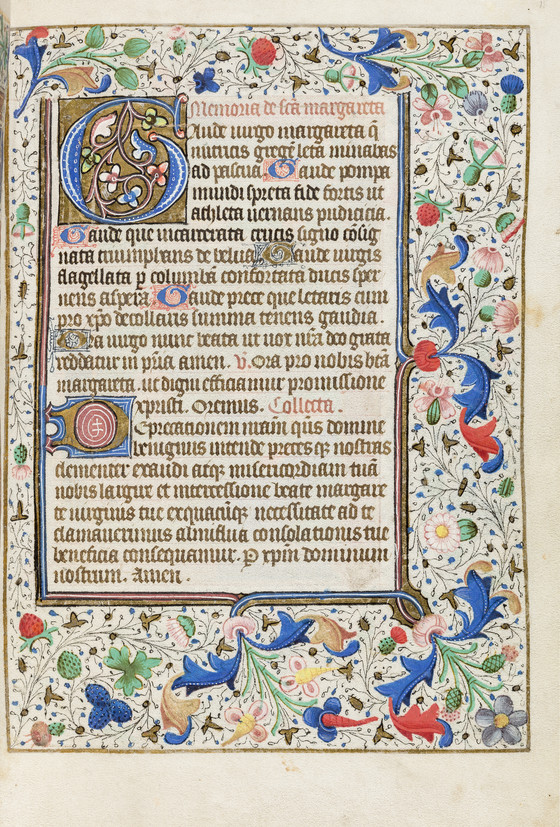 Memoria de scā margareta
GAude uirgo margareta q̄
nutricis grege leta minabas
ad pascua. Gaude pompa
mundi spreta fide fortis ut
athleta uernans pudicicia.
Gaude que incarcerata crucis signo cōsig
nata triumphans de belua Gaude uirgis
flagellata p columbā confortata ducis sper
nens aspera Gaude prece que letaris cum
pro xp̄o decollaris summa tenens gaudia.
uirgo nunc beata ut uox nr̄a deo grata
reddatur in pr̄ia amen. V. Ora pro nobis
margareta. ut digni efficiamur promissione
xpristi. Oremus. Collecta.
DEprecationem nr̄am q̄s domine
benignus intende preces qꝫ nostras
clementer exaudi atqꝫ misericordiam tuā
nobis largire et intercessione beate margare
te uirginis tue necessitate ad te
clamauerimus consolationis tue
beneficia consequamur. P xp̄m dominum
nostrum. Amen.